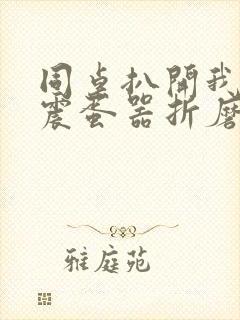 同桌扒開我
震蛋器折磨
雅庭苑